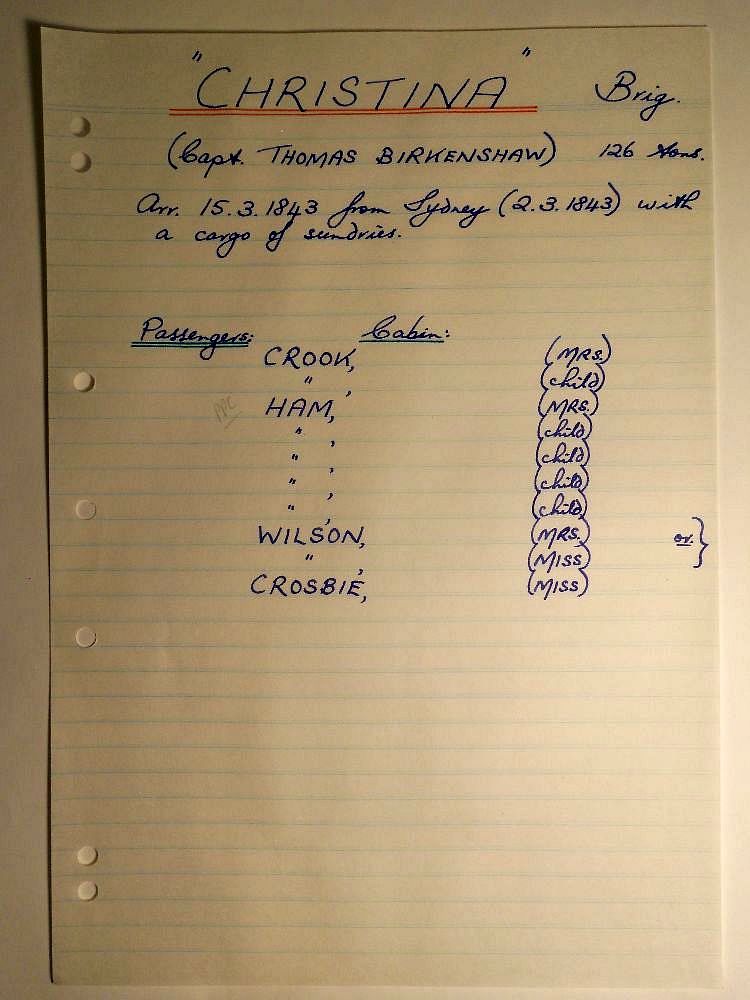 "CHRISTINA" Brig.
(Capt. THOMAS BIRKENSHAW) 126 tons.
Arr. 15.3.1843 from Sydney (2.3.1843) with
a cargo of sundries.
Passengers: Cabin:
CROOK, (MRS.)
" , (child)
PPC HAM, (MRS.)
" , (child)
" , (child)
" , (child)
" , (child)
WILSON, (MRS.) or. }
" , (MISS)
CROSBIE, (MISS)